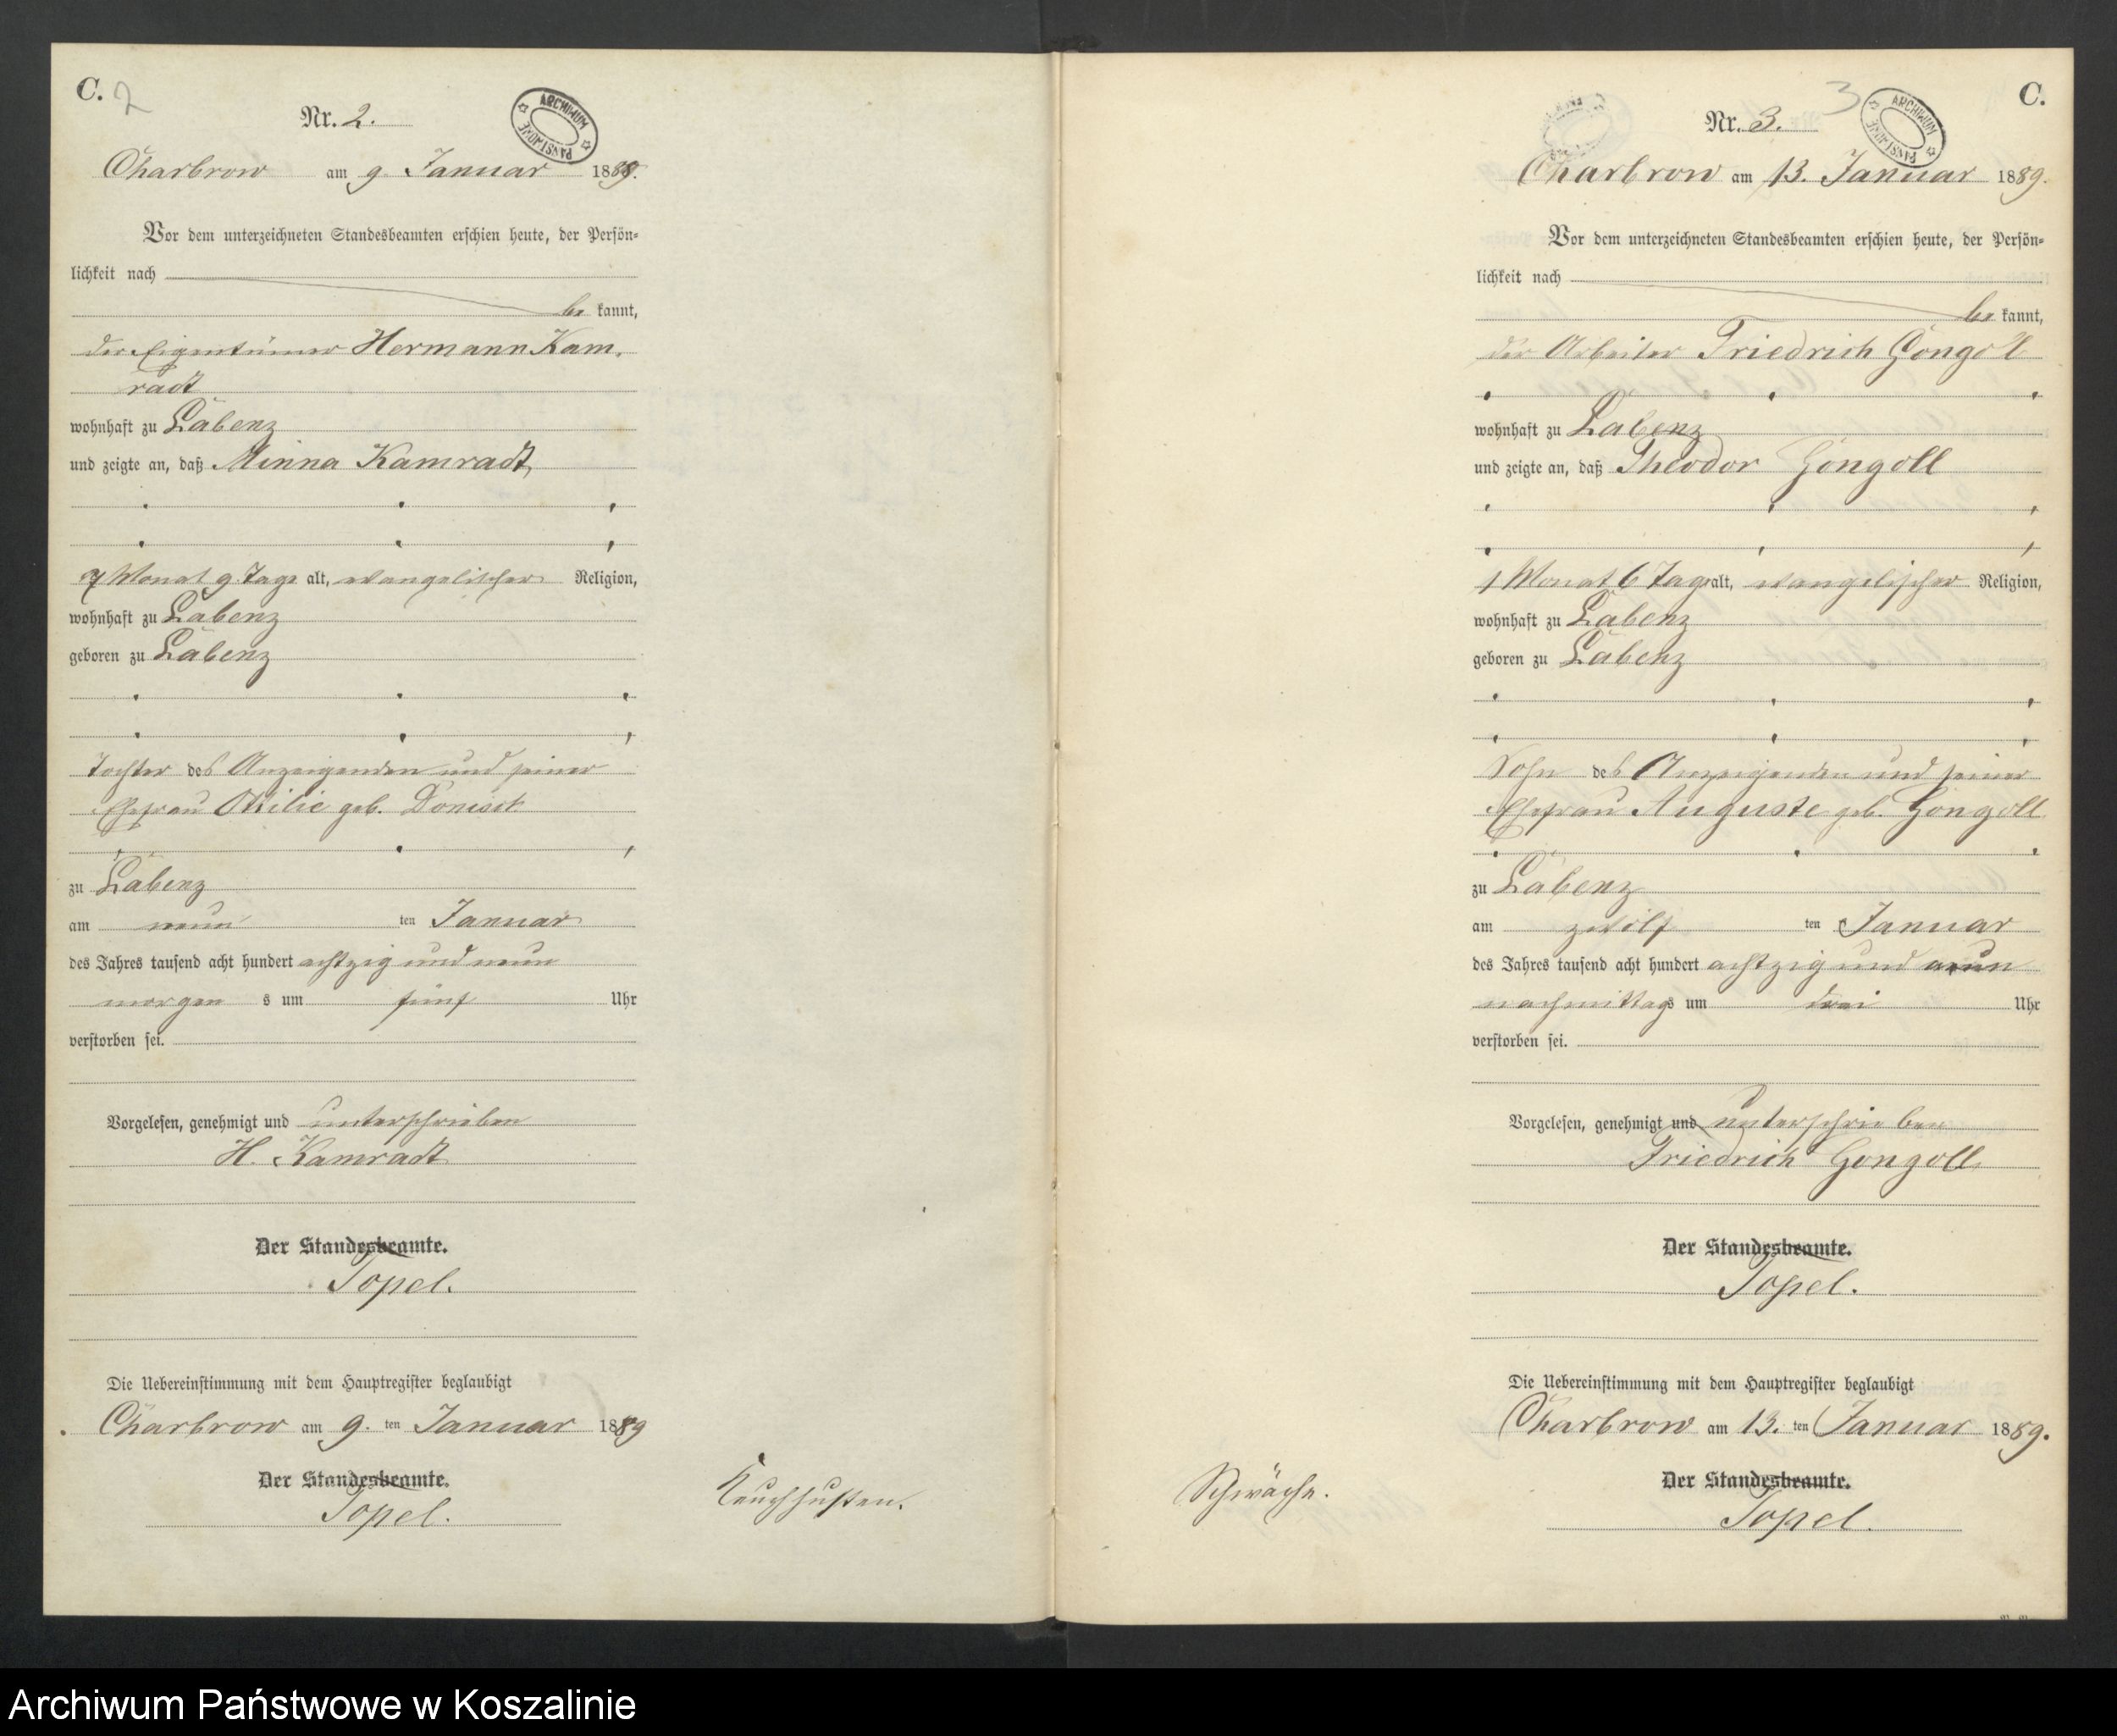 C. 2
Nr. 2.
ARCHIWUM PAŃSTWOWE
Charbrow am 9. Januar 1889.
Vor dem unterzeichneten Standesbeamten erschien heute, der Persön-
lichkeit nach
be kannt,
der Eigentümer Hermann Kam-
radt
wohnhaft zu Labenz
und zeigte an, daß Minna Kamradt,
Monat 9 Tage alt, evangelischer Religion,
wohnhaft zu Labenz
geboren zu Labenz
Tochter des Anzeigenden und seiner
Ehefrau Ottilie geb.
zu Labenz
am neun ten Januar
des Jahres tausend acht hundert achtzig und neun
morgen s um fünf Uhr
verstorben sei.
Vorgelesen, genehmigt und unterschrieben
H. Kamradt
Der Standesbeamte.
Topel.
Die Uebereinstimmung mit dem Hauptregister beglaubigt
Charbrow am 9. ten Januar 1889
Der Standesbeamte.
Topel.
Keuchhusten.
3 C.
Nr. 3.
ARCHIWUM PAŃSTWOWE
Charbrow am 13. Januar 1889.
Vor dem unterzeichneten Standesbeamten erschien heute, der Persön-
lichkeit nach
be kannt,
der Arbeiter Friedrich Gongoll
wohnhaft zu Labenz
und zeigte an, daß Theodor Gongoll
1 Monat 6 Tage alt, evangelischer Religion,
wohnhaft zu Labenz
geboren zu Labenz
Sohn des Anzeigenden und seiner
Ehefrau Auguste geb. Gongoll
zu Labenz
am zwölf ten Januar
des Jahres tausend acht hundert achtzig und neun
nachmittags um drei Uhr
verstorben sei.
Vorgelesen, genehmigt und unterschrieben
Friedrich Gongoll
Der Standesbeamte.
Topel.
Die Uebereinstimmung mit dem Hauptregister beglaubigt
Charbrow am 13. ten Januar 1889.
Der Standesbeamte.
Topel.
Schwäche.
Archiwum Państwowe w Koszalinie